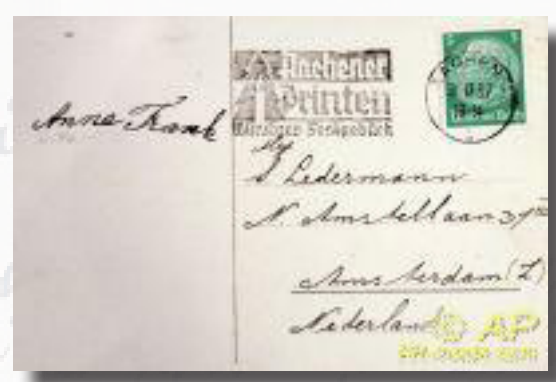 Anne Frank
Aachener
Printen
Würziges Festgebäck
AACHEN
S Ledermann
N. Amstellaan 37
Amsterdam (Z)
Nederland
© AP